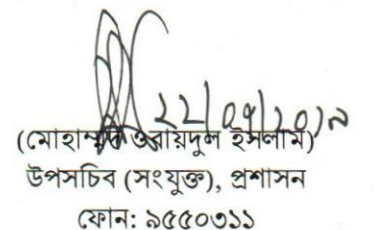 ২২/০৭/২০১৯
(মোহাম্মদ ওবায়দুল ইসলাম)
উপসচিব (সংযুক্ত), প্রশাসন
ফোন: ৯৫৫০৩১১